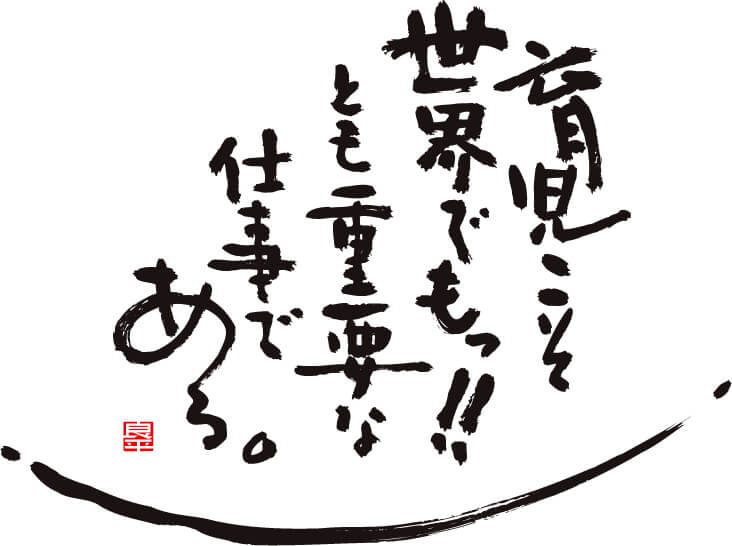 育児こそ
世界でもっ!!
とも重要な
仕事で
ある。
良平